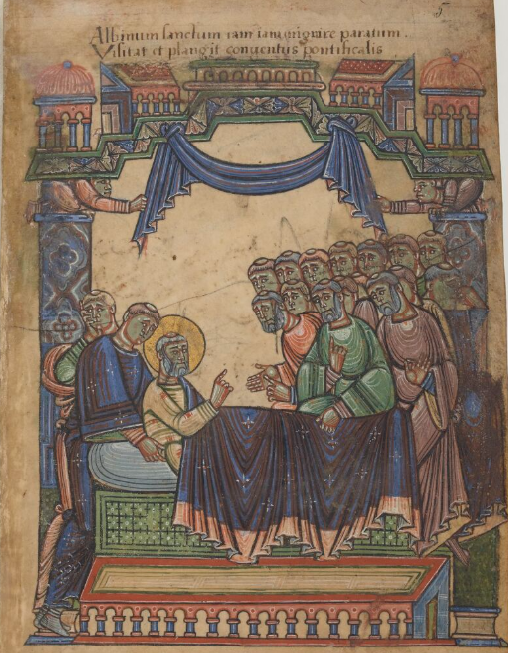 5
Albinum sanctum iam iam migrare paratum.
Visitat et plangit conventus pontificalis